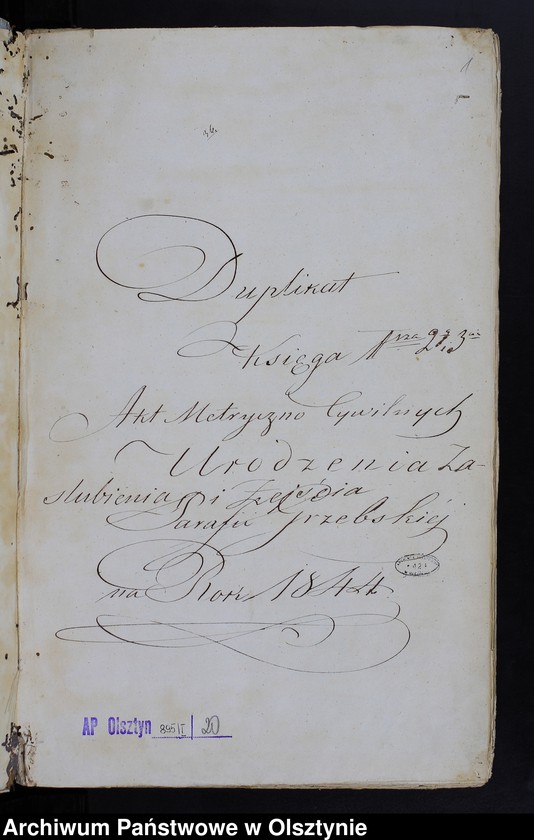 1
Duplikat
Księga 1sza 2ga 3cia
Akt Metryczno Cywilnych
Urodzenia Za-
slubienia i Zejścia
Parafii Grzebskiéj
na Rok 1844
AP Olsztyn 895/I 20
Archiwum Państwowe w Olsztynie